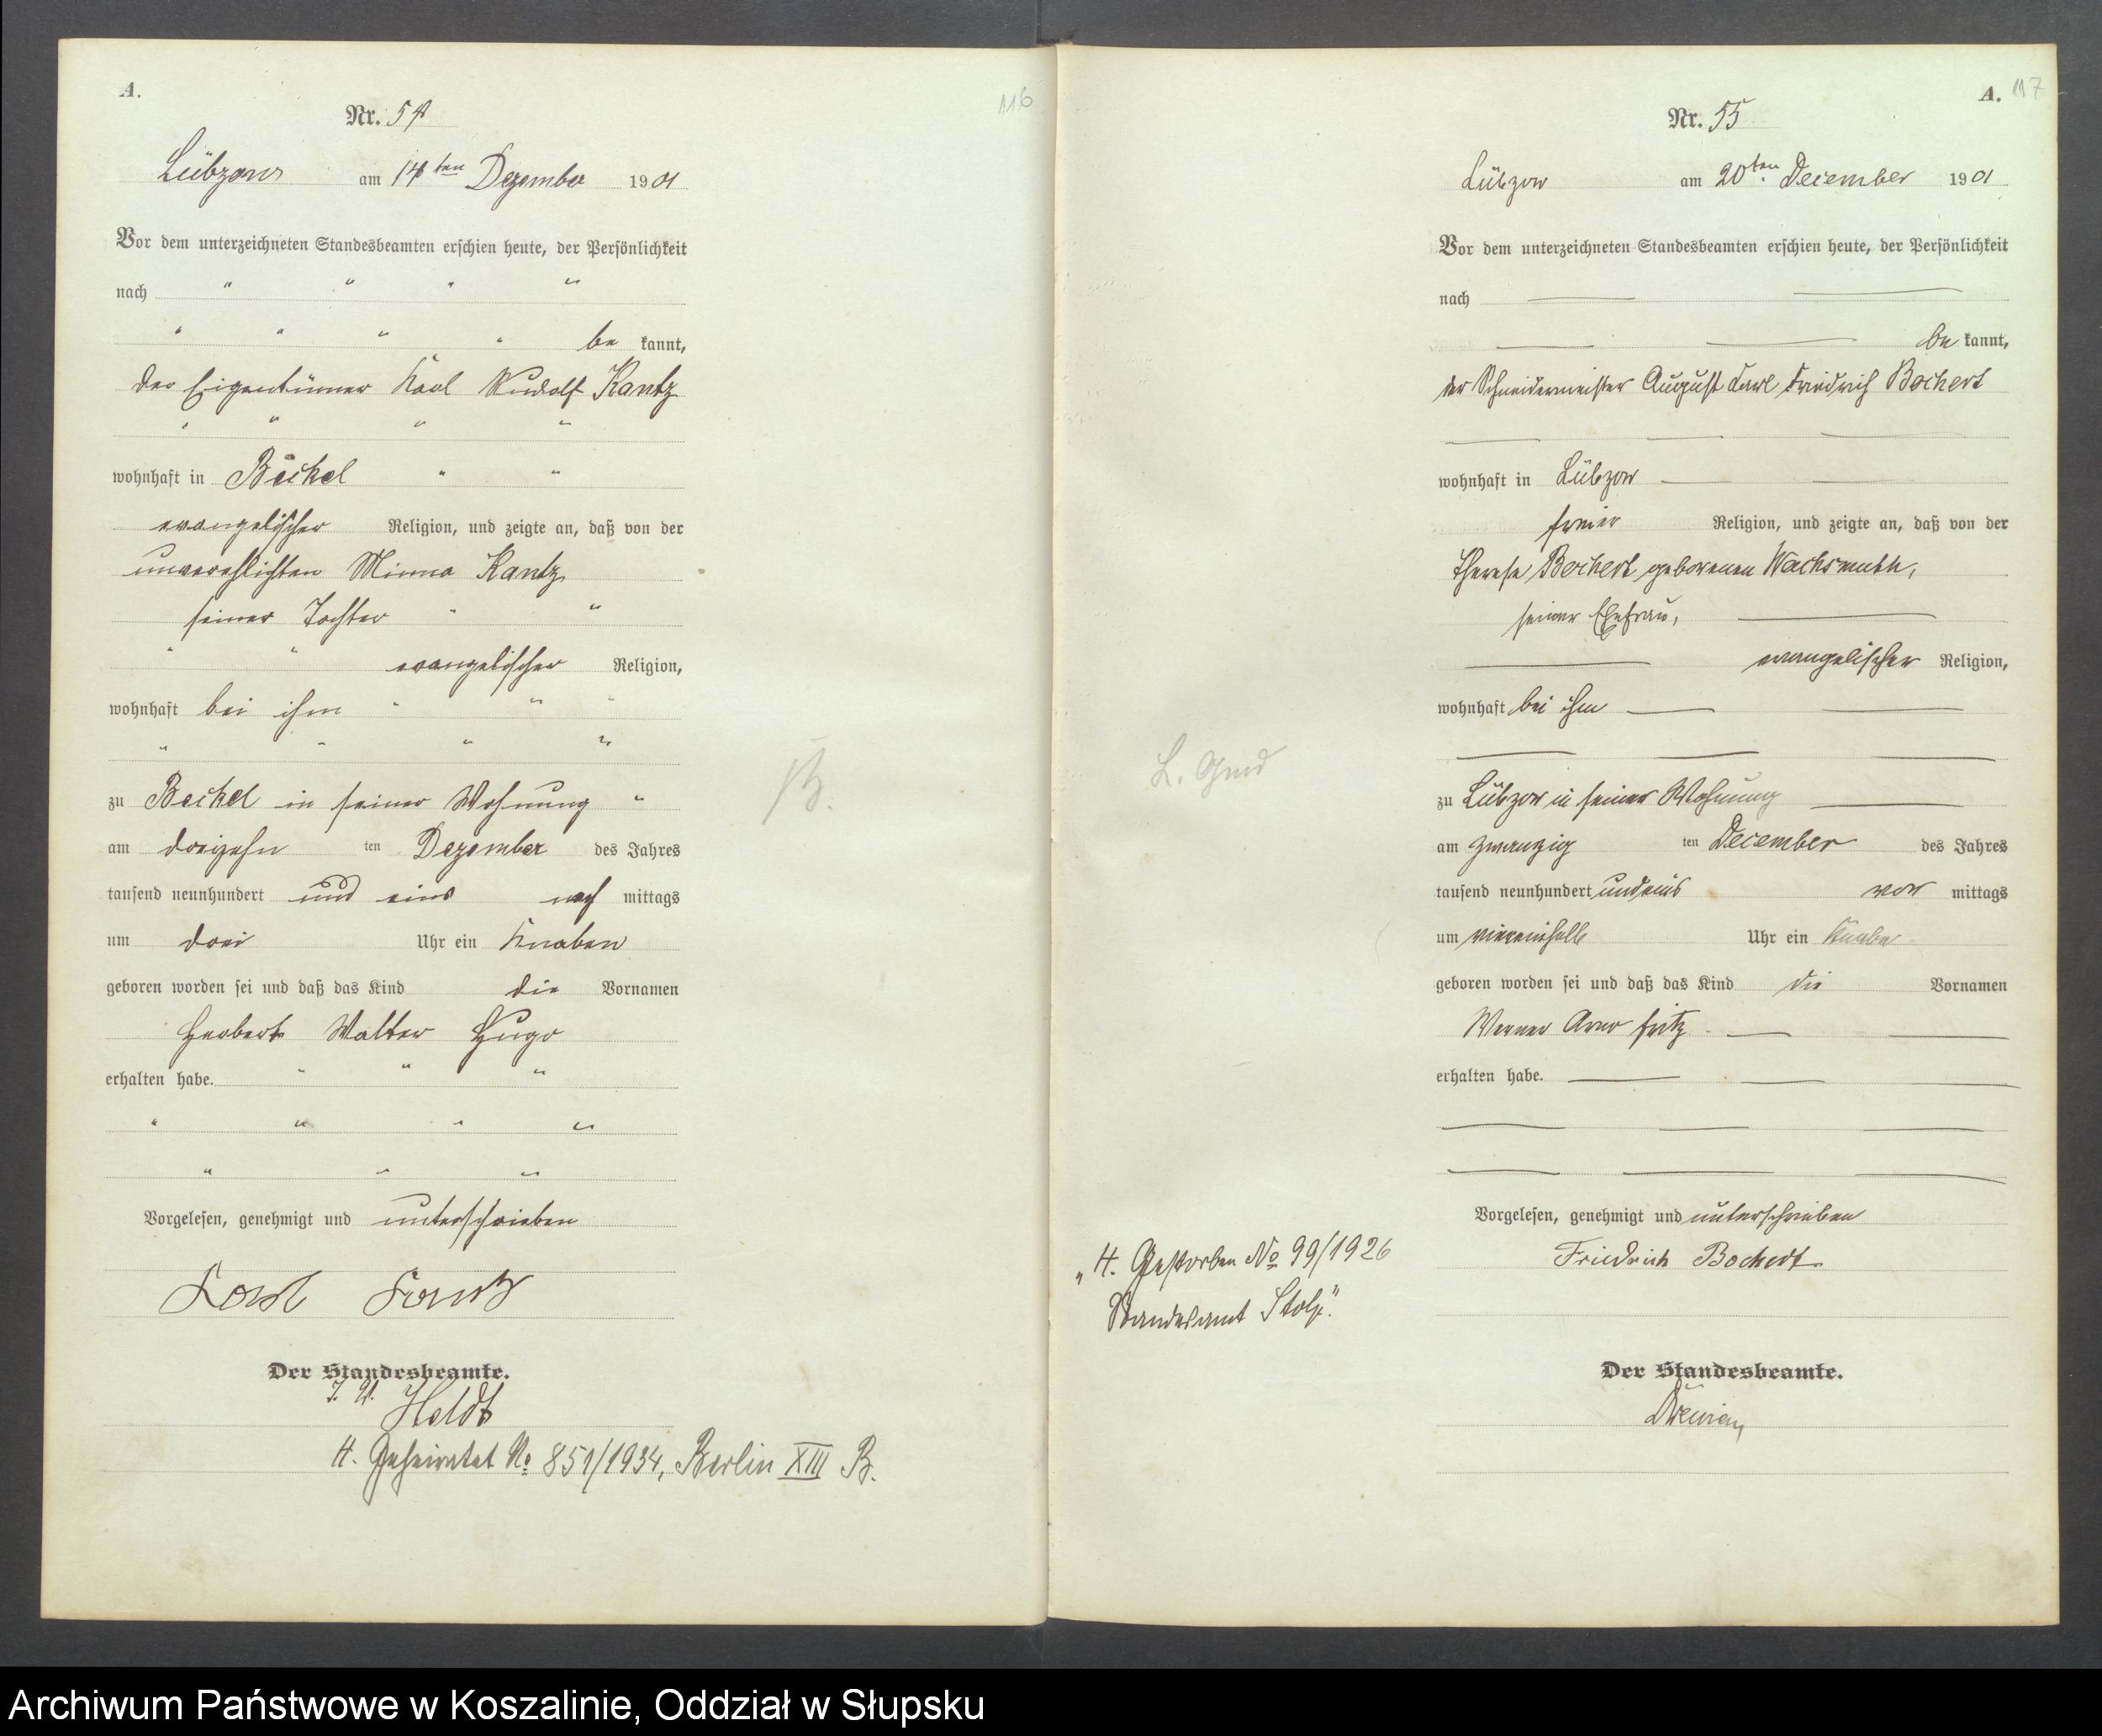 A.
116
Nr. 54
Lübzow am 14ten Dezember 1901
Vor dem unterzeichneten Standesbeamten erschien heute, der Persönlichkeit
nach " " " "
" " " " be kannt,
der Eigentümer Karl Rudolf Kantz
" " " "
wohnhaft in Beckel " "
evangelischer Religion, und zeigte an, daß von der
unverehlichten Minna Kantz
seiner Tochter " "
" " evangelischer Religion,
wohnhaft bei ihm " " "
" " " "
zu Beckel in seiner Wohnung "
am dreizehn ten Dezember des Jahres
tausend neunhundert und eins nach mittags
um drei Uhr ein Knaben
geboren worden sei und daß das Kind die Vornamen
Herbert Walter Hugo
erhalten habe. " " "
" " " "
" " "
Vorgelesen, genehmigt und unterschrieben
Karl Kantz
Der Standesbeamte.
Heldt
H. Geheiratet No 851/1934, Berlin XIII B.
A. 117
Nr. 55
Lübzow am 20ten December 1901
Vor dem unterzeichneten Standesbeamten erschien heute, der Persönlichkeit
nach — —
— — be kannt,
der Schneidermeister August Carl Friedrich Bochert
— — —
wohnhaft in Lübzow — —
freier Religion, und zeigte an, daß von der
Therese Bochert geborenen Wachsmuth,
seiner Ehefrau, —
— evangelischer Religion,
wohnhaft bei ihm — —
— — —
zu Lübzow in seiner Wohnung —
am zwanzig ten December des Jahres
tausend neunhundert undeins vor mittags
um viereinhalb Uhr ein Knabe
geboren worden sei und daß das Kind die Vornamen
Werner Arno Fritz — —
erhalten habe. — — —
— — —
— — —
Vorgelesen, genehmigt und unterschrieben
Friedrich Bochert
„H. Gestorben No 99/1926
Standesamt Stolp."
Der Standesbeamte.
Archiwum Państwowe w Koszalinie, Oddział w Słupsku